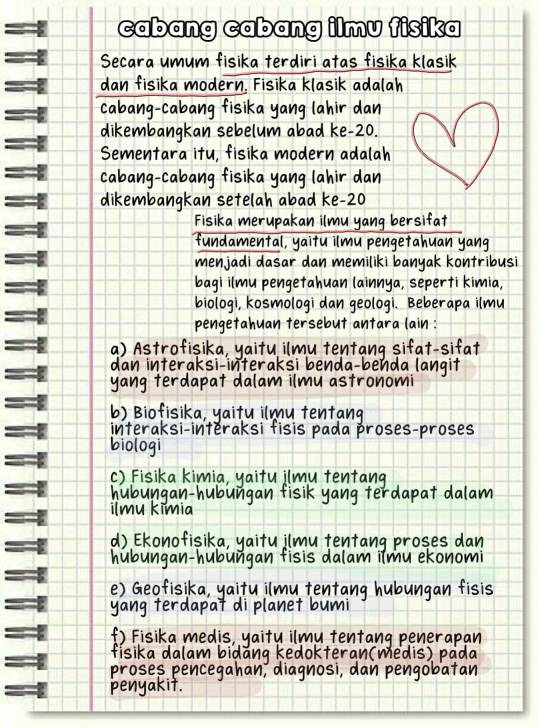 cabang cabang ilmu fisika
Secara umum fisika terdiri atas fisika klasik
dan fisika modern. Fisika klasik adalah
cabang-cabang fisika yang lahir dan
dikembangkan sebelum abad ke-20.
Sementara itu, fisika modern adalah
cabang-cabang fisika yang lahir dan
dikembangkan setelah abad ke-20
Fisika merupakan ilmu yang bersifat
fundamental, yaitu ilmu pengetahuan yang
menjadi dasar dan memiliki banyak kontribusi
bagi ilmu pengetahuan lainnya, seperti kimia,
biologi, kosmologi dan geologi. Beberapa ilmu
pengetahuan tersebut antara lain :
a) Astrofisika, yaitu ilmu tentang sifat-sifat
dan interaksi-interaksi benda-benda langit
yang terdapat dalam ilmu astronomi
b) Biofisika, yaitu ilmu tentang
interaksi-interaksi fisis pada proses-proses
biologi
c) Fisika kimia, yaitu ilmu tentang
hubungan-hubungan fisik yang terdapat dalam
ilmu kimia
d) Ekonofisika, yaitu ilmu tentang proses dan
hubungan-hubungan fisis dalam ilmu ekonomi
e) Geofisika, yaitu ilmu tentang hubungan fisis
yang terdapat di planet bumi
f) Fisika medis, yaitu ilmu tentang penerapan
fisika dalam bidang kedokteran(medis) pada
proses pencegahan, diagnosi, dan pengobatan
penyakit.